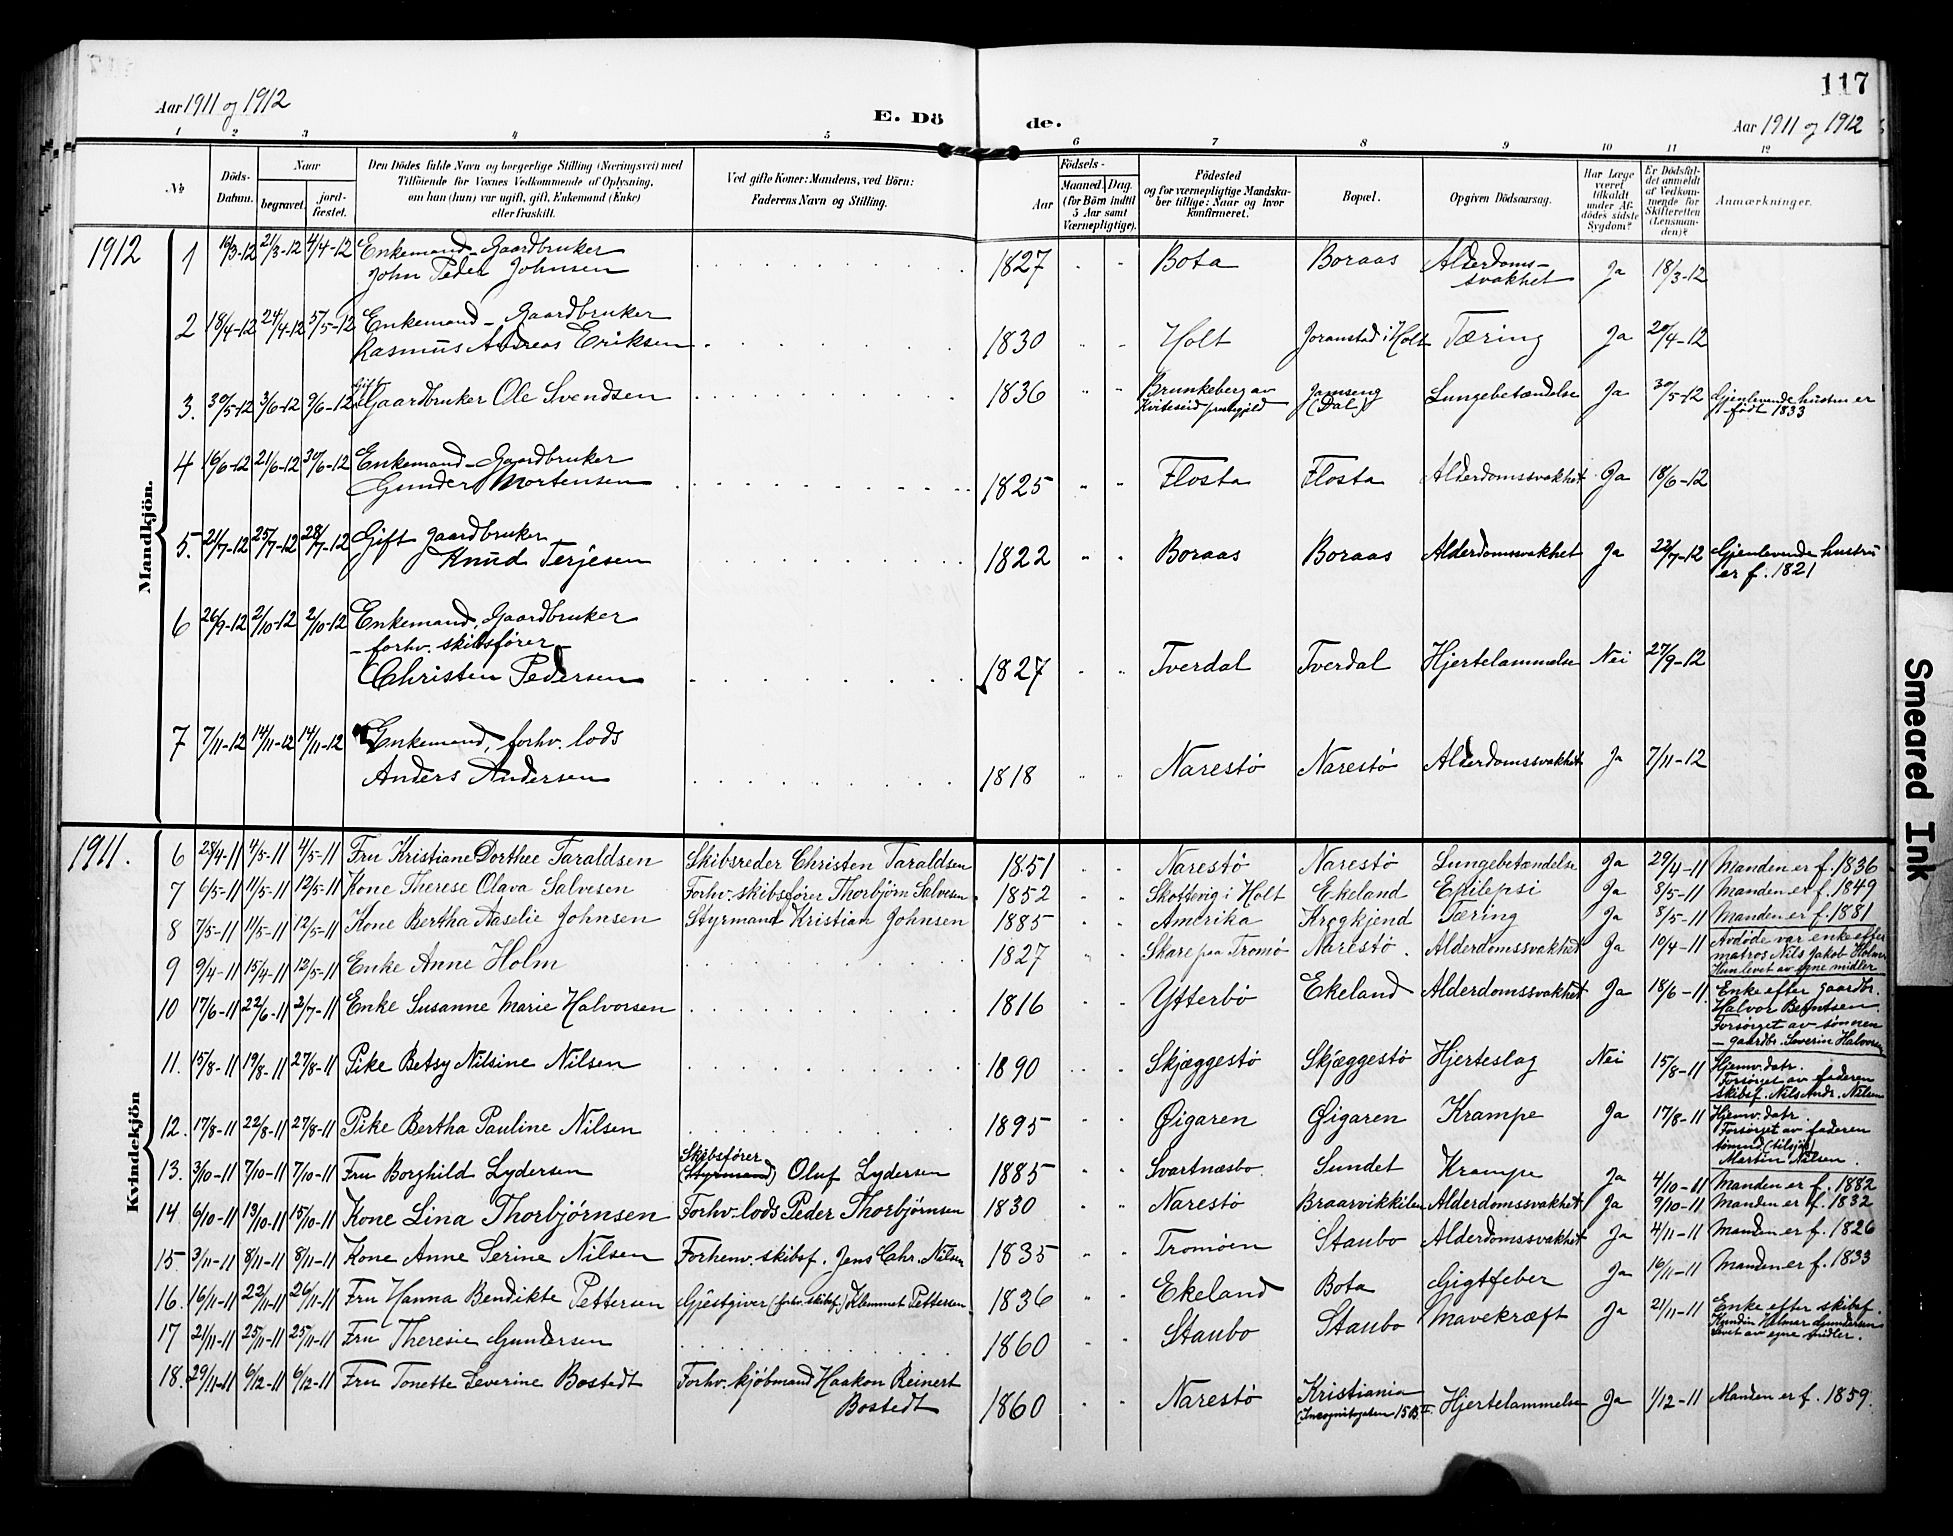 117
Aar 1911 og 1912
E. Döde.
Aar 1911 og 1912
1 2 3 4 5 6 7 8 9 10 11 12
№
Döds-Datum.
Naar
begravet.
jord-fæstet.
Den Dödes fulde Navn og borgerlige Stilling (Næringsvei) med
Tilföiende for Voxnes Vedkommende af Oplysning,
om han (hun) var ugift, gift, Enkemand (Enke)
eller fraskilt.
Ved gifte Koner: Mandens, ved Börn:
Faderens Navn og Stilling.
Födsels-
Aar
Maaned. Dag.
(for Börn indtil
5 Aar samt
Værnepligtige).
Födested
og for værnepligtige Mandska-
ber tillige: Naar og hvor
konfirmeret.
Bopæl.
Opgiven Dödsaarsag.
Har Læge
været
tilkaldt
under Af-
dödes sidste
Sygdom?
Er Dödsfal-
det anmeldt
af Vedkom-
mende for
Skifteretten
(Lensman-
den)?
Anmærkninger.
Mandkjön.
1912 1 16/3-12 21/3-12 4/4-12 Enkemand - Gaardbruker
John Peder Johnsen 1827 Bota Boraas Alderdoms-
svakhet Ja 18/3-12
2 18/4-12 24/4-12 5/5-12 Enkemand - Gaardbruker
Rasmus Andreas Eriksen 1830 Holt Joranstad i Holt Tæring Ja 20/4-12
3. 30/5-12 3/6-12 9/6-12 Gift
Gaardbruker Ole Svendsen 1836 Brunkeberg av
Kviteseid prestgjeld Jomseng
(Dal) Lungebetændelse Ja 30/5-12 Gjenlevende hustru er
født 1833
4 16/6-12 21/6-12 30/6-12 Enkemand - Gaardbruker
Gunder Mortensen 1825 Flosta Flosta Alderdomssvakhet Ja 18/6-12
5. 21/7-12 25/7-12 28/7-12 Gift gaardbruker
Knud Terjesen 1822 Boraas Boraas Alderdomssvakhet Ja 22/7-12 Gjenlevende hustru
er f. 1821
6 26/9-12 2/10-12 2/10-12 Enkemand, Gaardbruker
- forhv. skibsfører -
Christen Pedersen 1827 Tverdal Tverdal Hjertelammelse Nei 27/9-12
7 7/11-12 14/11-12 14/11-12 Enkemand, forhv. lods
Anders Andersen 1818 Narestö Narestö Alderdomssvakhet Ja 7/11-12
Kvindekjön
1911. 6 28/4-11 4/5-11 4/5-11 Fru Kristiane Dorthee Taraldsen Skibsreder Christen Taraldsen 1851 Narestö Narestö Lungebetændelse Ja 29/4-11 Manden er f. 1836
7 6/5-11 11/5-11 12/5-11 Kone Therese Olava Salvesen Forhv. skibsfører Thorbjörn Salvesen 1852 Skottevig i Holt Ekeland Epilepsi Ja 8/5-11 Manden er f. 1849
8 7/5-11 11/5-11 12/5-11 Kone Bertha Aaselie Johnsen Styrmand Kristian Johnsen 1885 Amerika Krogkjend Tæring Ja 8/5-11 Manden er f. 1881
9 9/4-11 15/4-11 12/5-11 Enke Anne Holm 1827 Skare paa Tromö Narestö. Alderdomssvakhet Ja 10/4-11 Avdøde var enke efter
matros Nils Jakob Holm
Hun levet av egne midler
10 17/6-11 22/6-11 2/7-11 Enke Susanne Marie Halvorsen 1816 Ytterbö Ekeland Alderdomssvakhet Ja 18/6-11 Enke efter gaardbr.
Halvor Berntsen.
Forsørget av sønnen
- gaardbr. Severin Halvorsen
11. 15/8-11 19/8-11 27/8-11 Pike Betsy Nilsine Nilsen 1890 Skjæggestö Skjæggestö Hjerteslag Nei 15/8-11 Hjemv. datr.
Forsørget av faderen
skibsf. Nils Andr. Nilsen
12. 17/8-11 22/8-11 27/8-11 Pike Bertha Pauline Nilsen 1895 Øigaren Øigaren Krampe Ja 17/8-11 Hjemv. datr.
Forsørget av faderen
tømmd. (tilsjös)
Martin Nilsen.
13. 3/10-11 7/10-11 7/10-11 Fru Borghild Lydersen Skibsfører
(Styrmand) Oluf Lydersen 1885 Svartnæsbo Sundet Krampe Ja 4/10-11 Manden er f. 1882
14 6/10-11 13/10-11 15/10-11 Kone Lina Thorbjørnsen Forhv. lods Peder Thorbjørnsen 1830 Narestö Braarvikkilen Alderdomssvakhet Ja 9/10-11 Manden er f. 1832
15 3/11-11 8/11-11 8/11-11 Kone Anne Serine Nilsen Forhenv. skibsf. Jens Chr. Nilsen 1835 Tromöen Staubo Alderdomssvakhet Ja 4/11-11 Manden er f. 1826
16. 16/11-11 22/11-11 26/11-11 Fru Hanna Bendikte Pettersen Gjestgiver (forhv. skibsf.) Klemmet Pettersen. 1836 Ekeland Bota Gigtfeber Ja 16/11-11 Manden er f. 1833
17 21/11-11 25/11-11 25/11-11 Fru Theresie Gundersen 1860 Staubo Staubo Mavekræft Ja 21/11-11 Enke efter skibsf.
Helmar Gundersen
Levet av egne midler.
18. 29/11-11 6/12-11 6/12-11 Fru Tonette Severine Bostedt Forhv. kjöbmand Haakon Reinert
Bostedt 1860 Narestö Kristiania
(Incognitogaten 15 B II) Hjertelammelse Ja 1/12-11 Manden er f. 1859.
Smeared Ink